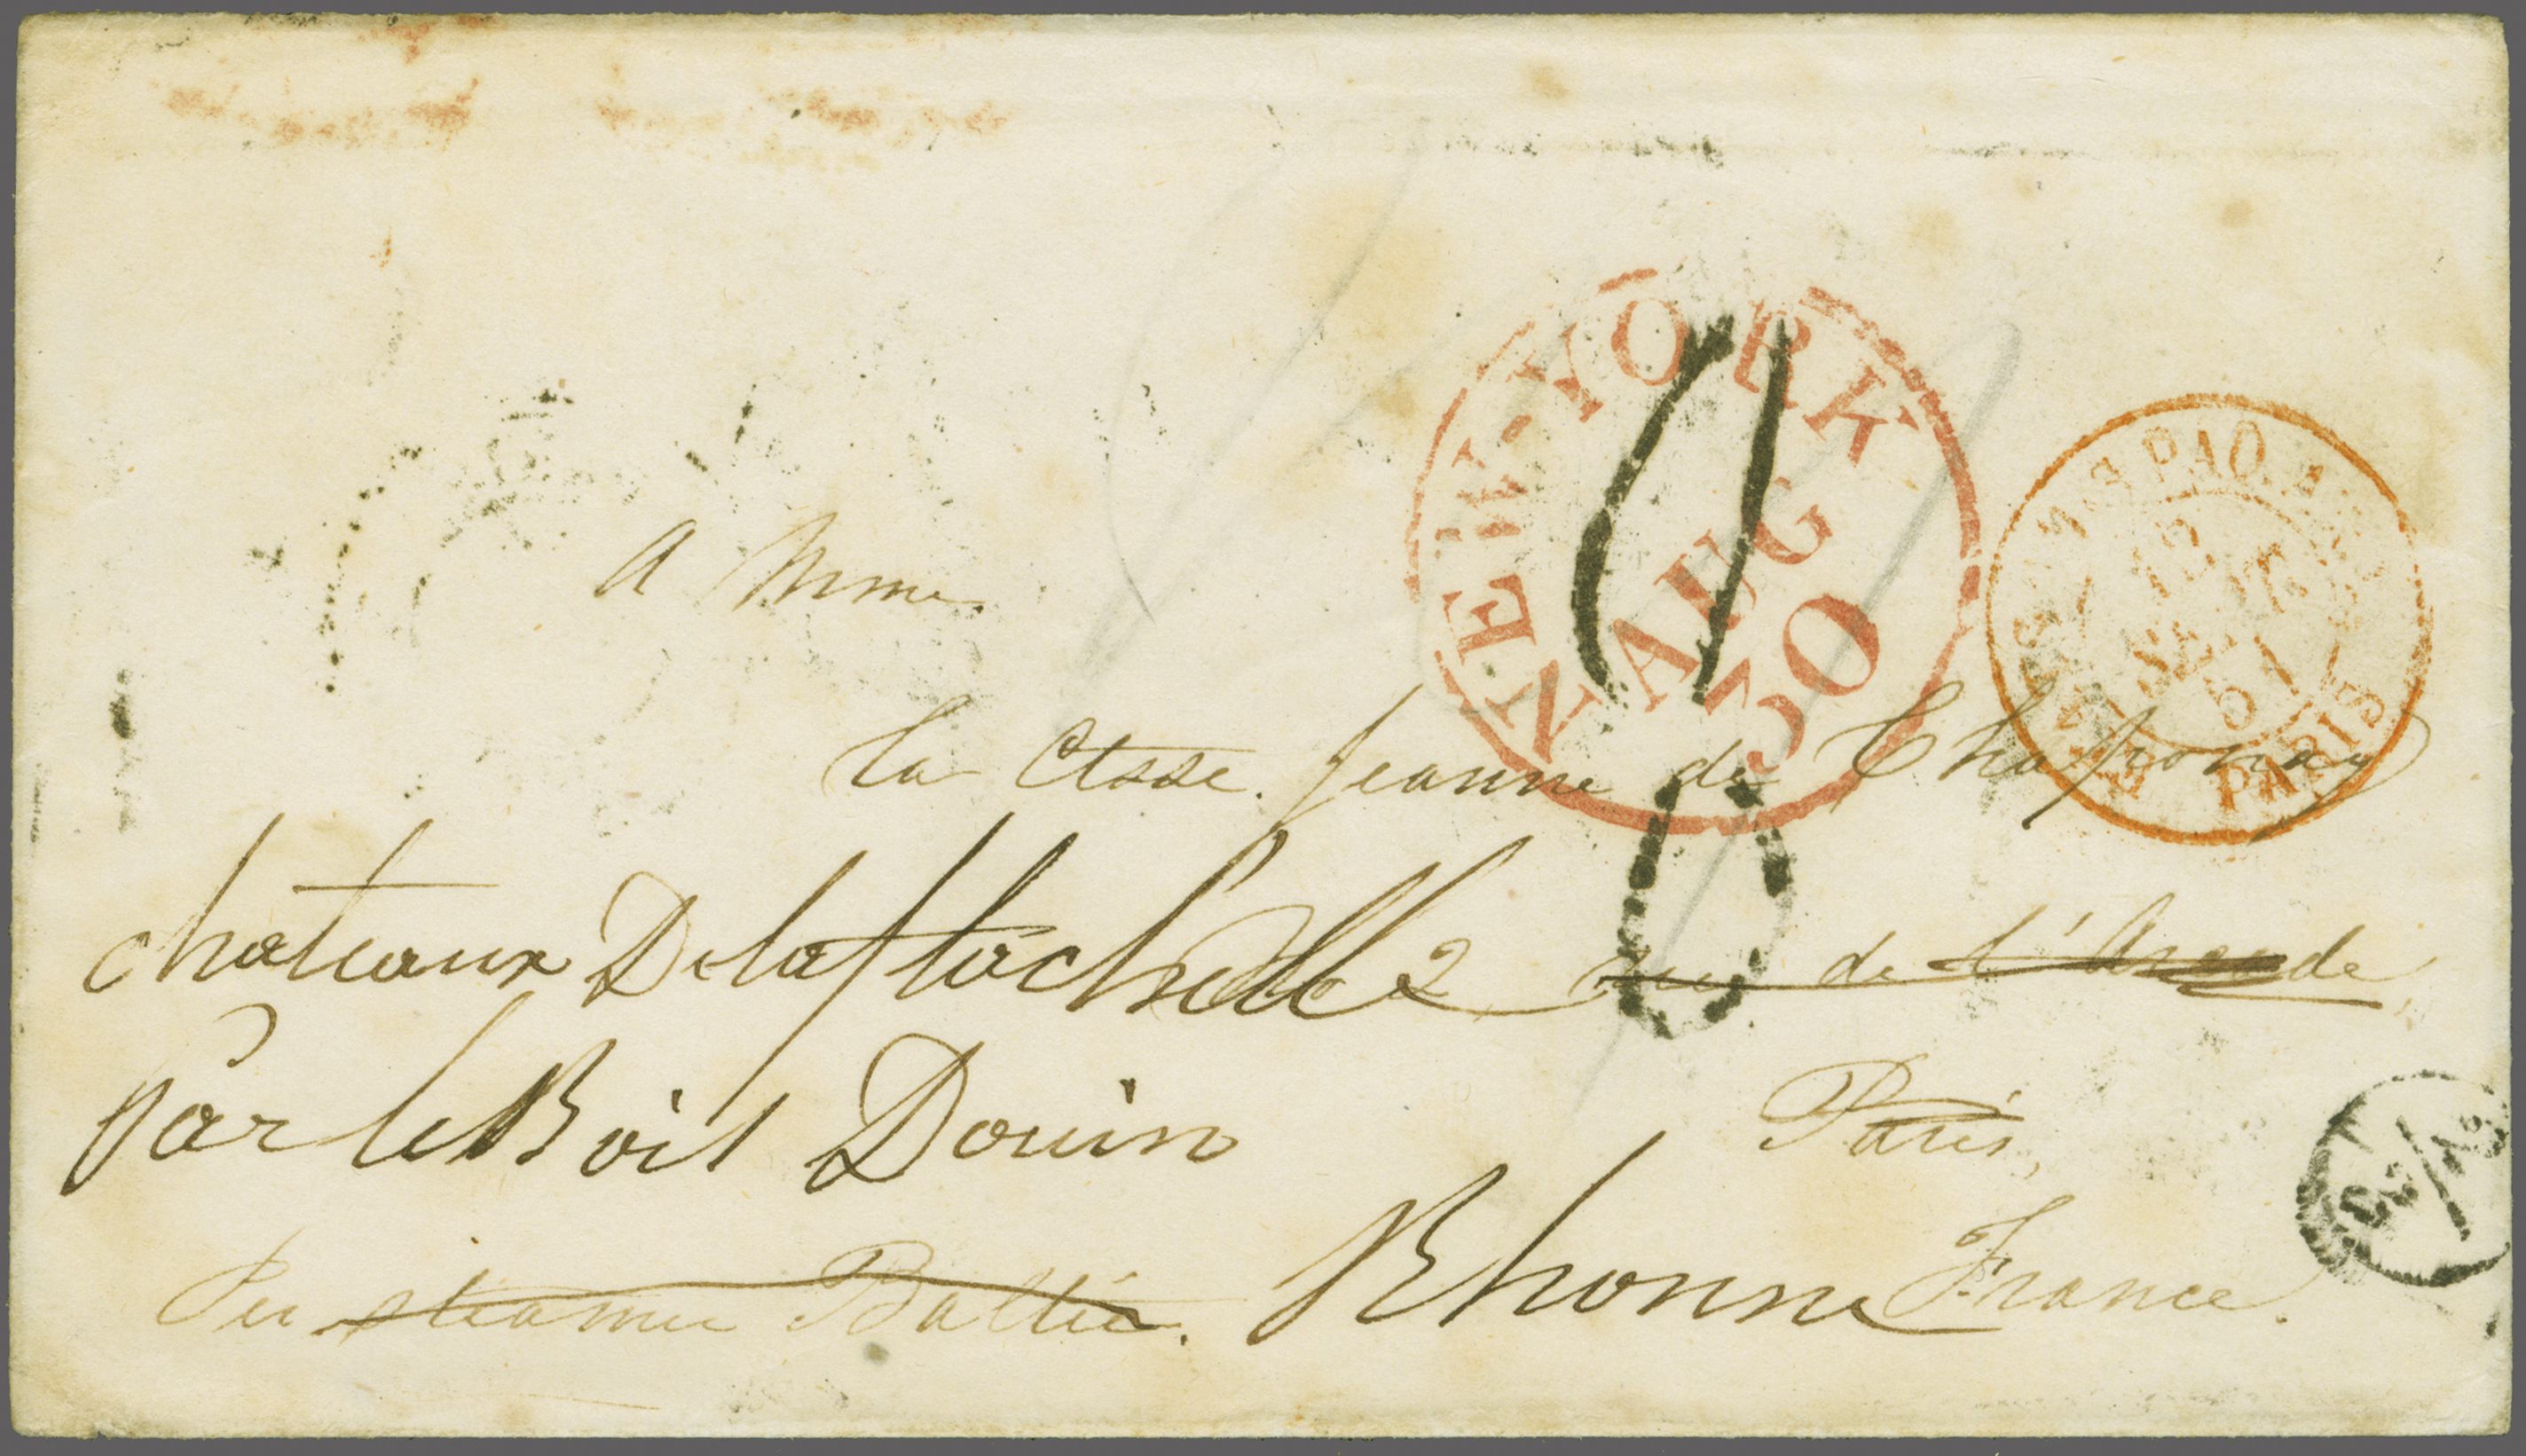 NEW-YORK
AUG
30
12
SEPT
51
PARIS
A Mme
la Ctsse. Jeanne de Chaponay
chateaux Dela 2 rue de l'Arcade,
par le Bois Douin
Paris,
Per steamer Baltic.
Rhonne France.